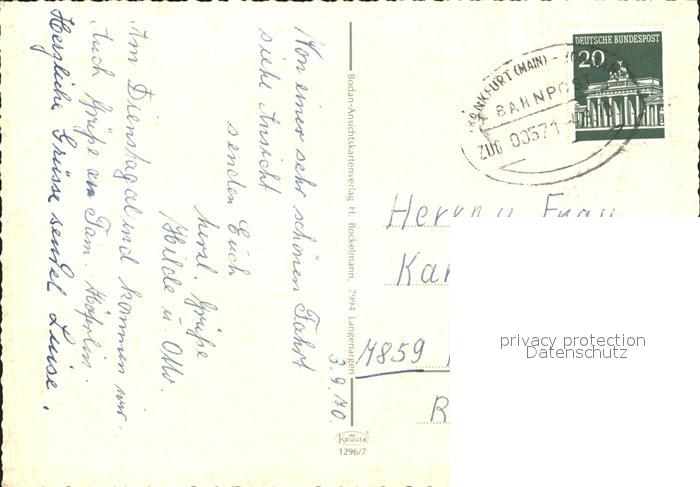 3.9.70.
Von einer sehr schönen Fahrt
siehe Ansicht
senden Euch
herzl. Grüße
Hilde u. Otto.
Am Dienstag abend kommen wir.
Auch Grüße an Fam.
Herzliche Grüsse sendet Luise.
Bodan-Ansichtskartenverlag H. Bockelmann, 7994 Langenargen
KRÜGER
1296/7
DEUTSCHE BUNDESPOST
20
FRANKFURT (MAIN) -
BAHNPOST
ZUG 00371
Herrn u. Frau
Kar
7859
R
privacy protection
Datenschutz